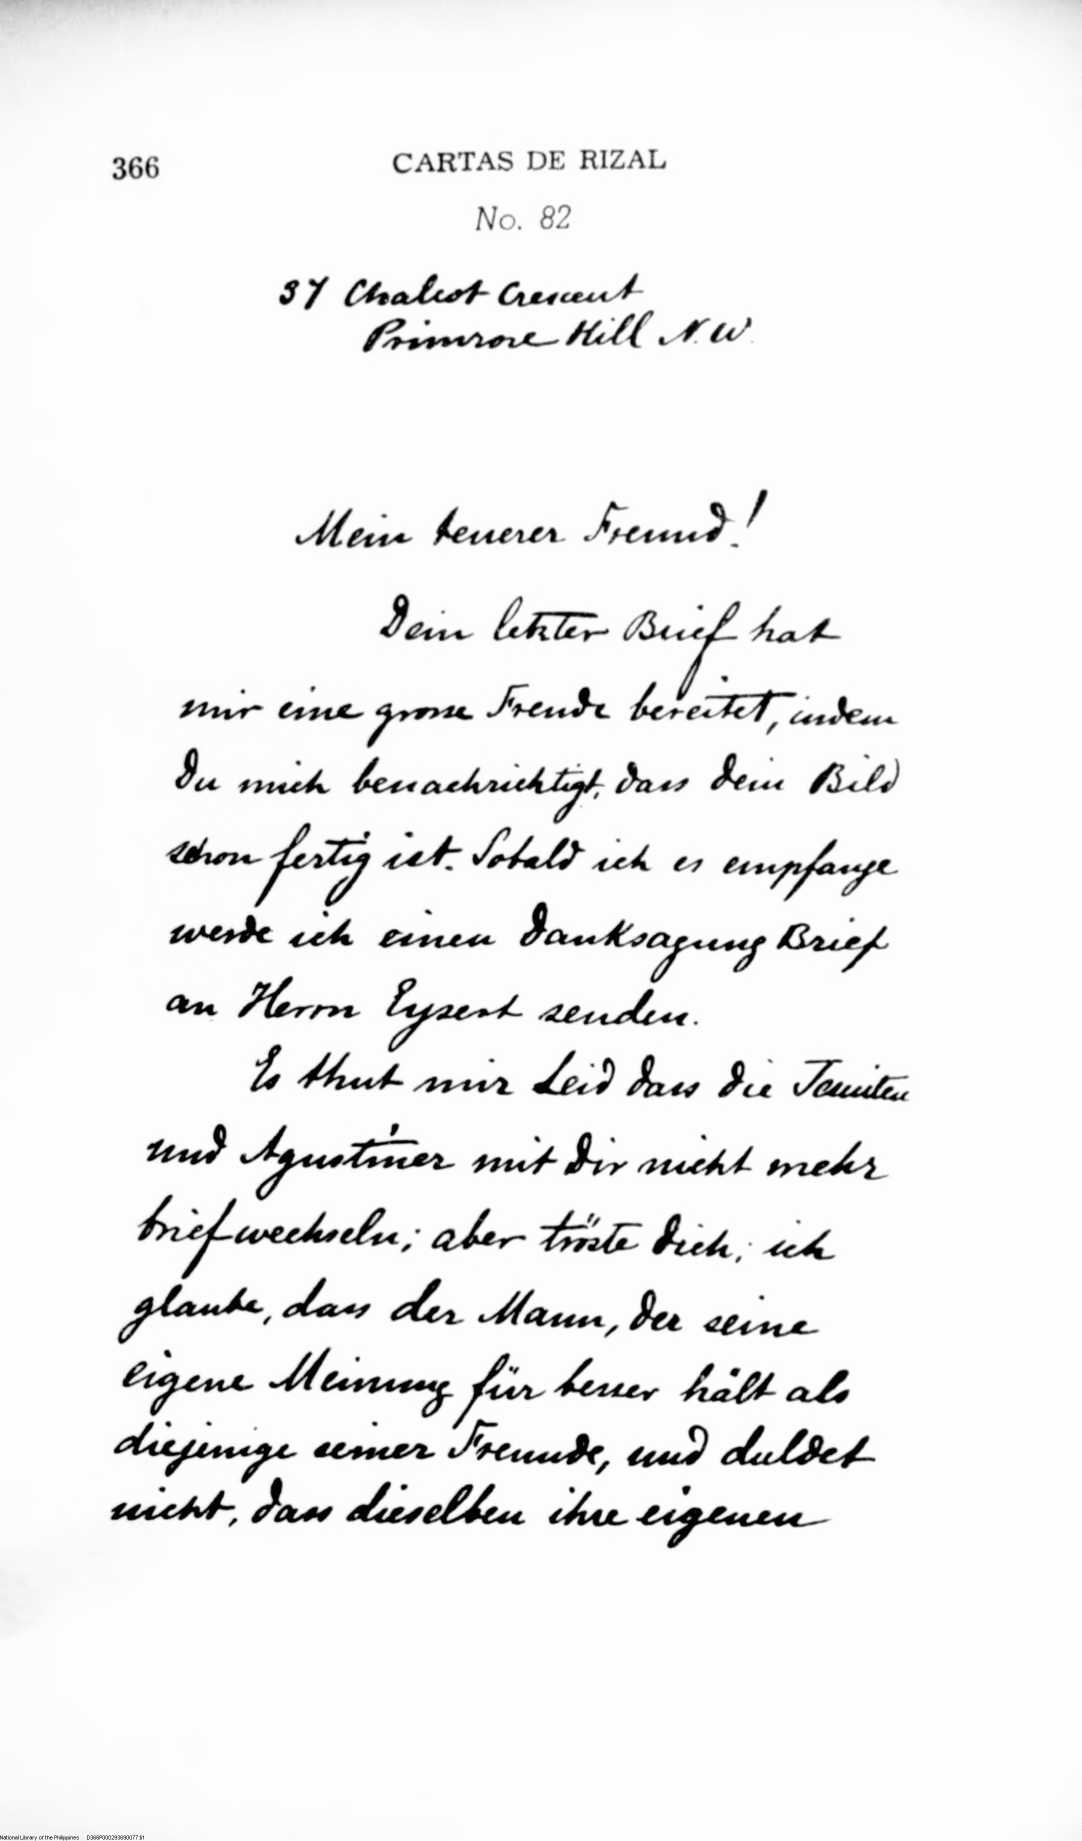 366
CARTAS DE RIZAL
No. 82
37 Chalcot Crescent
Primrose Hill N. W.
Mein teuerer Freund!
Dein letzter Brief hat
mir eine grosse Freude bereitet, indem
Du mich benachrichtigt, dass dein Bild
schon fertig ist. Sobald ich es empfange
werde ich einen Danksagung Brief
an Herrn Eysert senden.
Es thut mir Leid dass die Jesuiten
und Agustiner mit Dir nicht mehr
briefwechseln; aber tröste Dich; ich
glaube, dass der Mann, der seine
eigene Meinung für besser hält als
diejenige seiner Freunde, und duldet
nicht, dass dieselben ihre eigenen
National Library of the Philippines D366P000293690077.tif